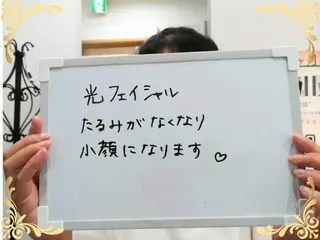 光フェイシャル
たるみがなくなり
小顔になります♡